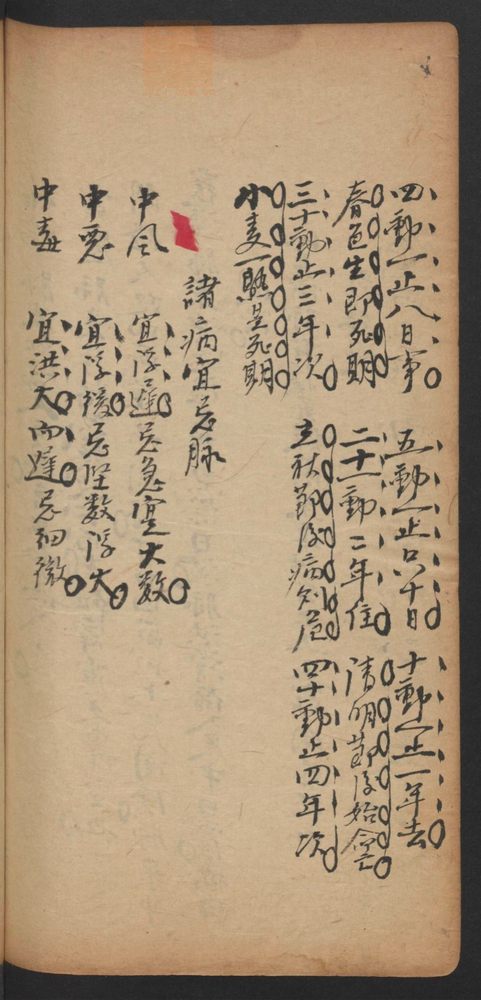 四動一止八日事 五動一止只十日 十動一止一年去
春色生即死期 二十一動二年住 清明節後始命亡
三十動止三年次 立秋節後病知危 四十動止四年次
小麦一縣是死期
諸病宜忌脉
中风 宜浮遲 忌急寔大数
中恶 宜浮緩 忌堅数浮大
中毒 宜洪大而遲 忌細微